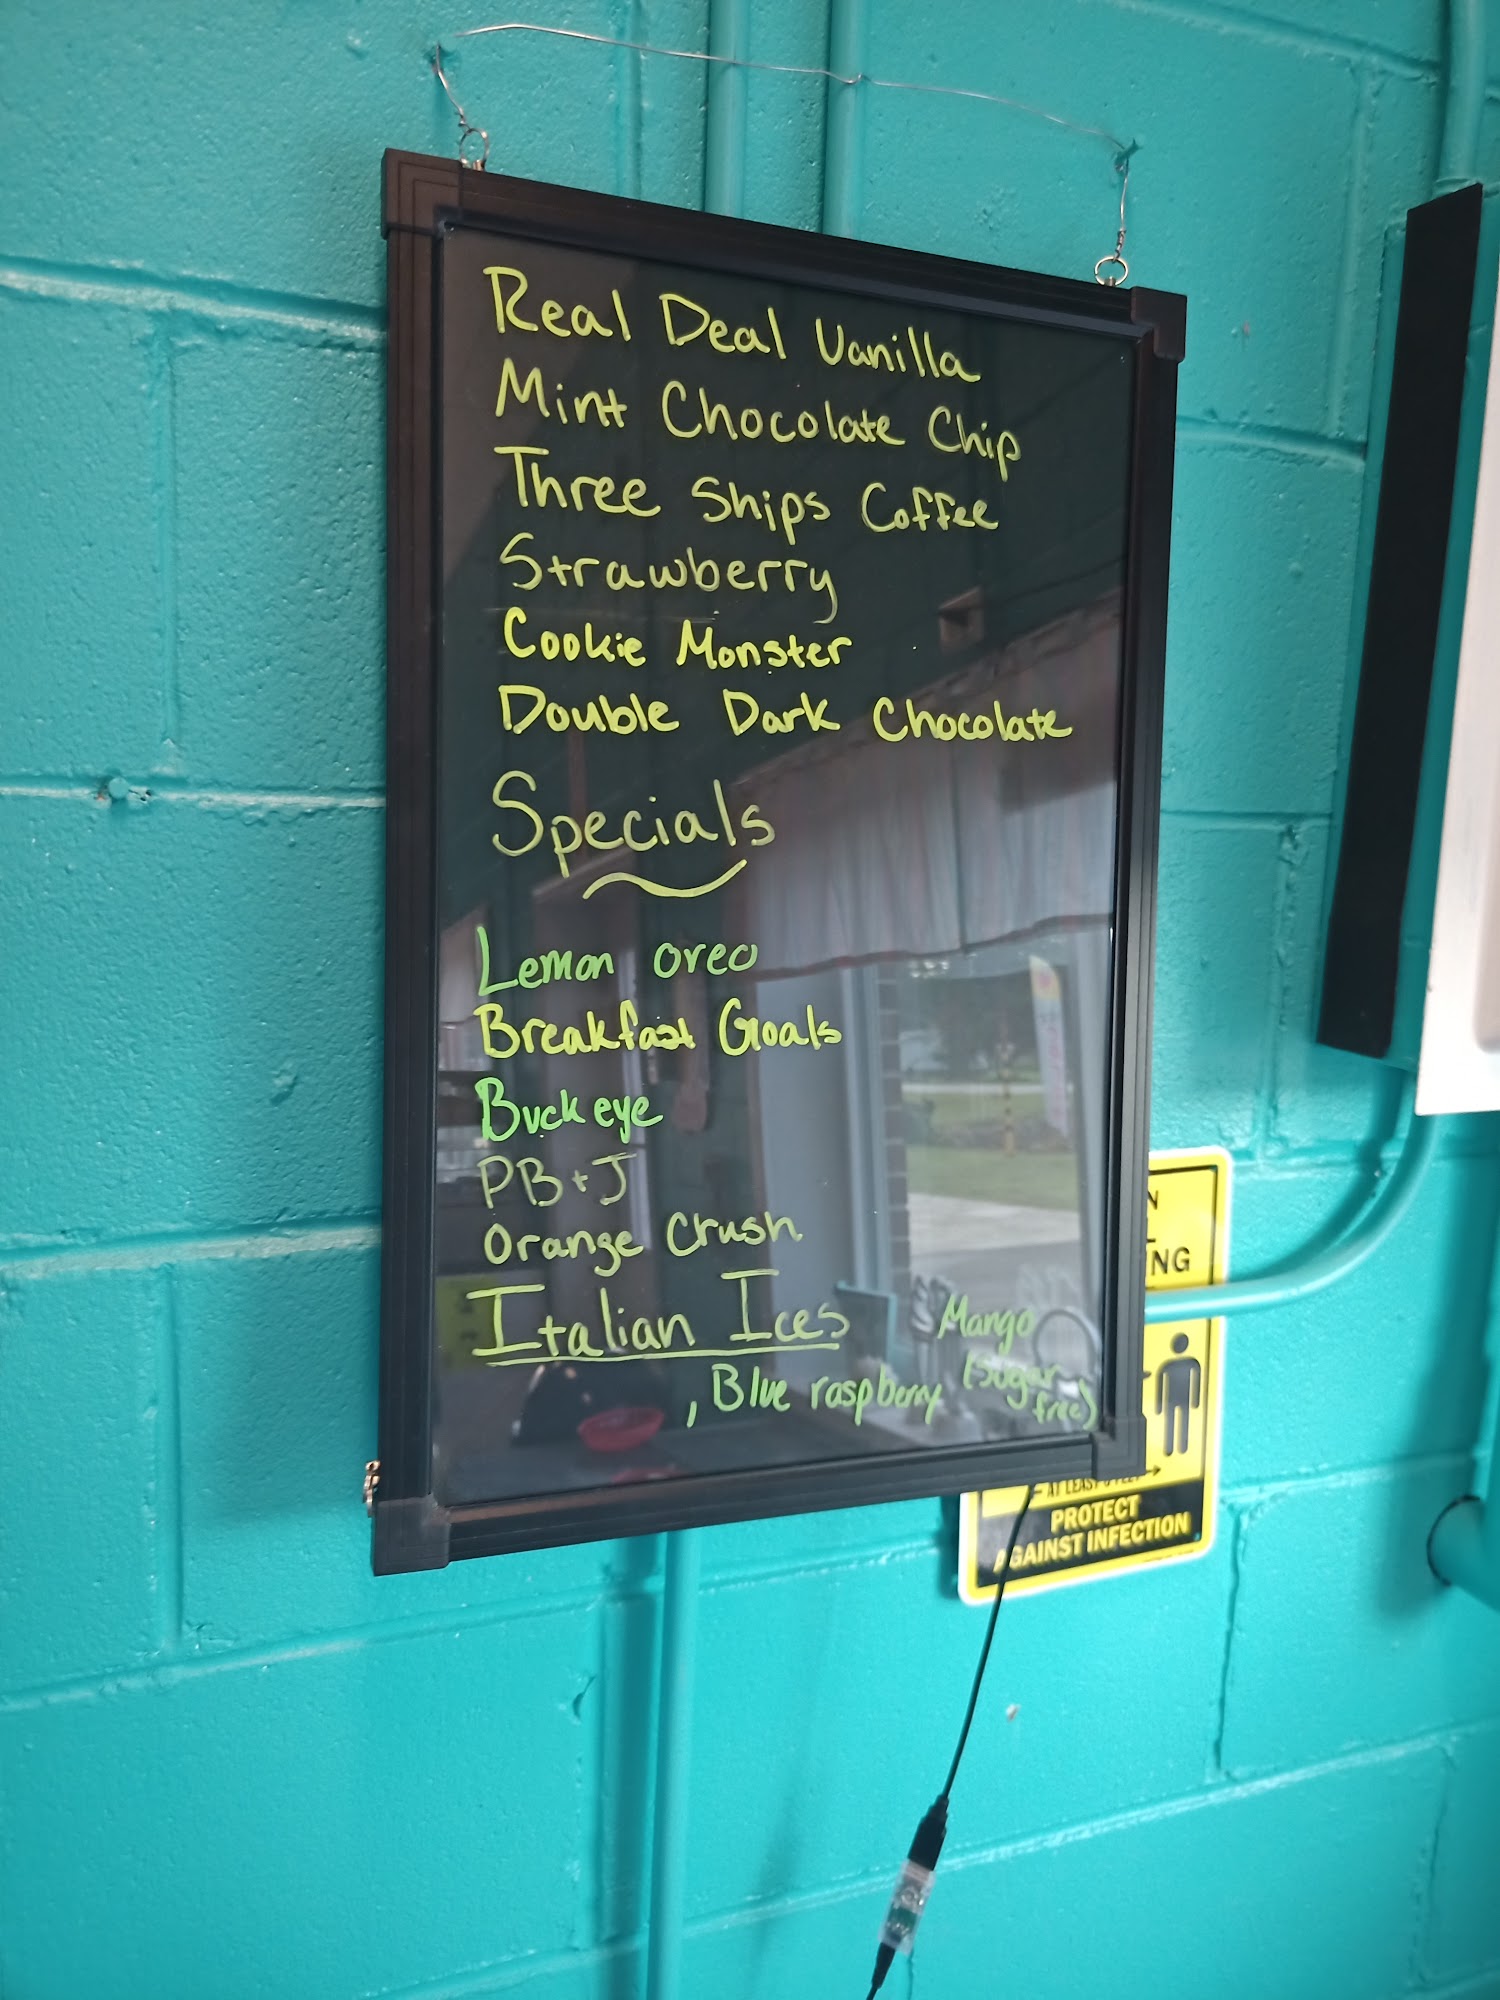 Real Deal Vanilla
Mint Chocolate Chip
Three Ships Coffee
Strawberry
Cookie Monster
Double Dark Chocolate
Specials
Lemon oreo
Breakfast Goals
Buckeye
PB+J
Orange Crush
Italian Ices
, Blue raspberry
Mango
(sugar
free)
N
NG
AT LEAST 6 FEET
PROTECT
AGAINST INFECTION